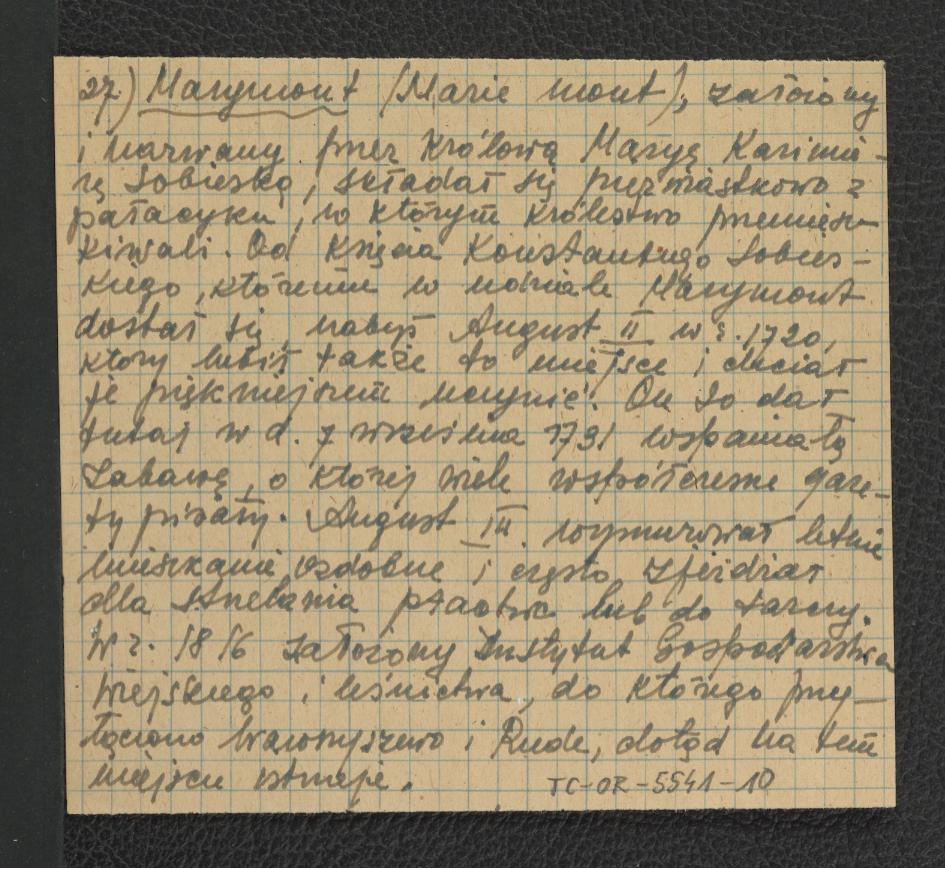 27) Marymont (Marie mont), założony
i nazwany przez Królową Maryę Kazimie-
rę Sobieską, składał się pierwiastkowo z
pałacyku, w którym królestwo przemiesz-
kiwali. Od Księcia Konstantego Sobies-
kiego, któremu w udziale Marymont
dostał się, nabył August II w r. 1720,
który lubił także to miejsce i chciał
je piękniejszem uczynić. On to dał
tutaj w d. 7 września 1731 wspaniałą
zabawę, o której wiele współczesne gaze-
ty pisały. August III wymurował letnie
mieszkanie ozdobne i często zjeżdżał
dla strzelania ptactwa lub do tarczy.
W r. 1816 założony Instytut Gospodarstwa
wiejskiego i leśnictwa, do którego przy-
łączono Wawrzyszewo i Rudę, dotąd na tem
miejscu istnieje.
TC-OR-5541-10